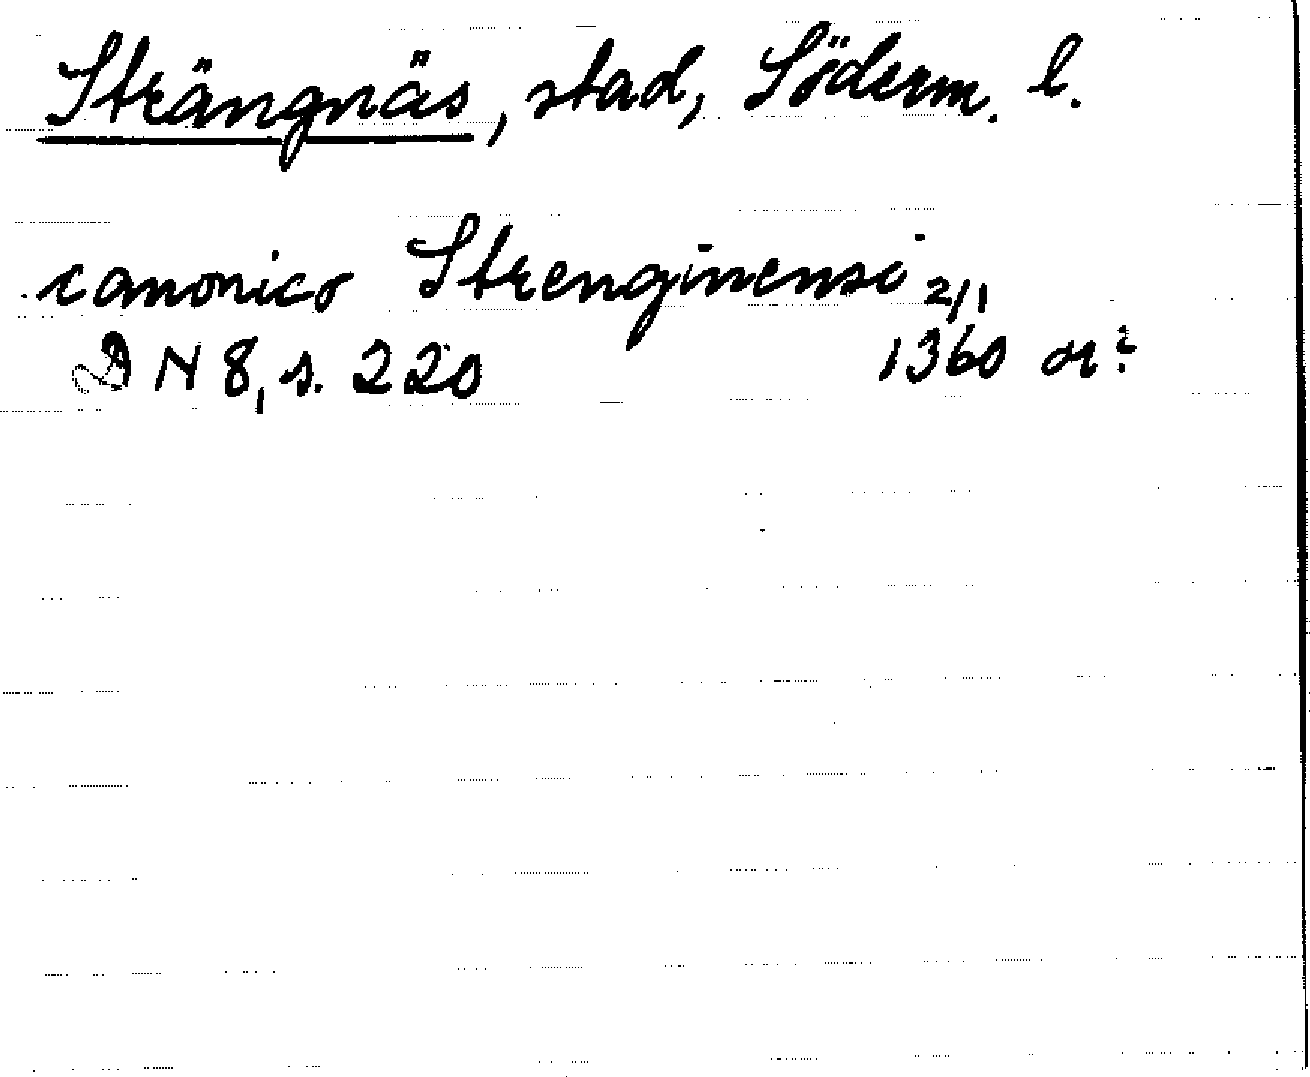 Strängnäs, stad, Söderm. l.
canonico Strenginensi 2/1
DN 8, s. 220 1360 or?